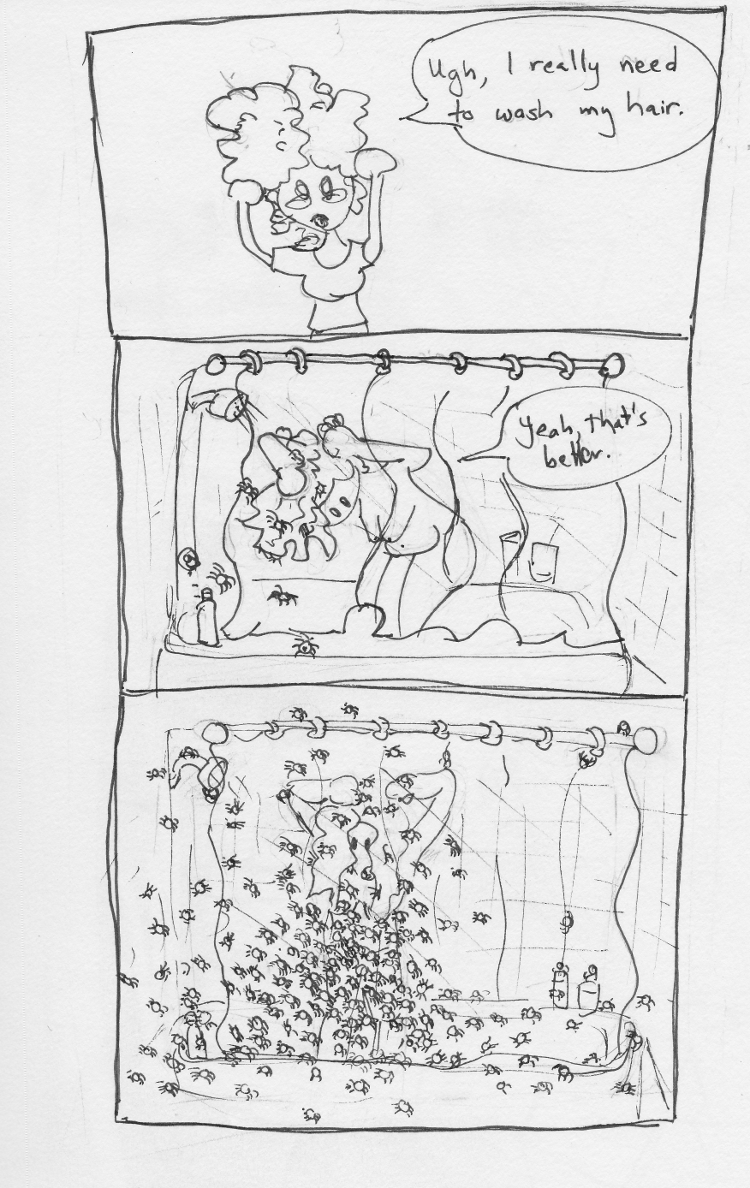 Ugh, I really need
to wash my hair.
Yeah, that's
better.